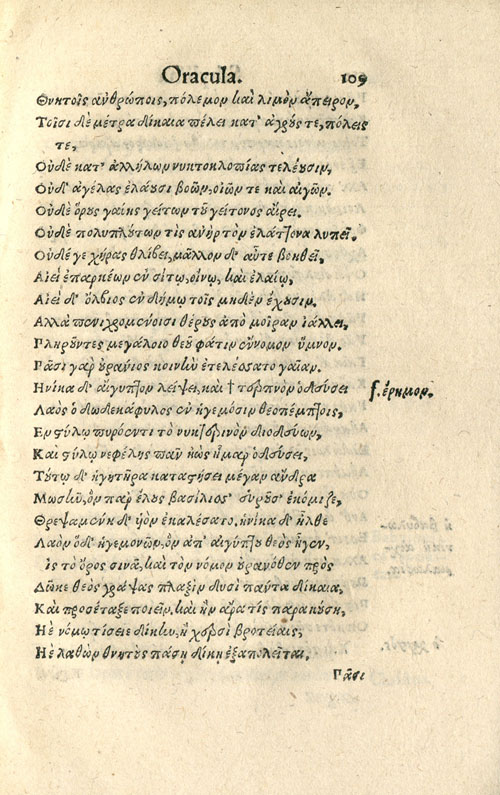 Oracula. 109
Θνητοῖς ἀνθρώποις, πόλεμον καὶ λιμὸν ἄπειρον,
Τοῖσι δὲ μέτρα δίκαια πέλει κατ' ἀγρούς τε, πόλεις
τε,
Οὐδὲ κατ' ἀλλήλων νυκτοκλοπίας τελέουσιν,
Οὐδ' ἀγέλας ἐλάουσι βοῶν, οἰῶν τε καὶ αἰγῶν.
Οὐδὲ ὅρους γαίης γείτων τοῦ γείτονος αἴρει.
Οὐδὲ πολυπλούτων τὶς ἀνὴρ τὸν ἐλάττονα λυπεῖ.
Οὐδέ γε χήρας θλίβει, μᾶλλον δ' αὖτε βοηθεῖ,
Αἰεὶ ἐπαρκέων ἐν σίτῳ, οἴνῳ, καὶ ἐλαίῳ,
Αἰεὶ δ' ὄλβιος ἐν δήμῳ τοῖς μηδὲν ἔχουσιν.
Ἀλλὰ πενιχρομένοισι θέρους ἀπὸ μοῖραν ἰάλλει,
Πληροῦντες μεγάλοιο θεοῦ φάτιν ἔννομον ὕμνον.
Πᾶσι γὰρ οὐράνιος κοινὴν ἐτελέσσατο γαῖαν.
Ἡνίκα δ' αἴγυπτον λείψει, καὶ † τερπνὸν ὁδεύσει
f. ἔρημον.
Λαὸς ὁ δωδεκάφυλος ἐν ἡγεμόσιν θεοπέμπτοις,
Ἐν στύλῳ πυρόεντι τὸ νυκτερινὸν διοδεύων,
Καὶ στύλῳ νεφέλης πᾶν ἠὼς ἦμαρ ὁδεύσει,
Τούτῳ δ' ἡγητῆρα καταστήσει μέγαν ἄνδρα
Μωσῆν, ὃν παρ' ἕλους βασίλισσ' εὑροῦσ' ἐκόμιζε,
Θρεψαμένη δ' υἱὸν ἐκαλέσατο. ἡνίκα δ' ἦλθε
Λαὸν ὁδ' ἡγεμονῶν, ὃν ἀπ' αἰγύπτου θεὸς ἦγεν,
Εἰς τὸ ὄρος σινᾶ, καὶ τὸν νόμον οὐρανόθεν πρὸς
Δῶκε θεὸς γράψας πλαξὶν δυσὶ πάντα δίκαια,
Καὶ προσέταξε ποιεῖν, καὶ ἢν ἄρα τὶς παρακούσῃ,
Ἠὲ νόμῳ τίσειε δίκην, ἢ χερσὶ βροτείαις,
Ἠὲ λαθὼν θνητοὺς πάσῃ δίκῃ ἐξαπολεῖται.
Πᾶσι